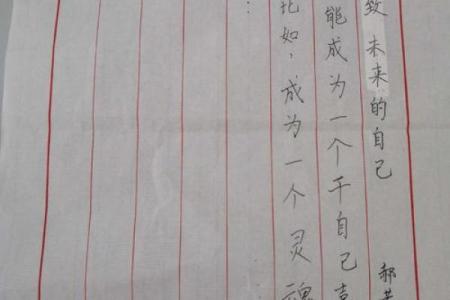 致 未来的自己 郝
能成为一个干自己喜
比如，成为一个灵魂
：